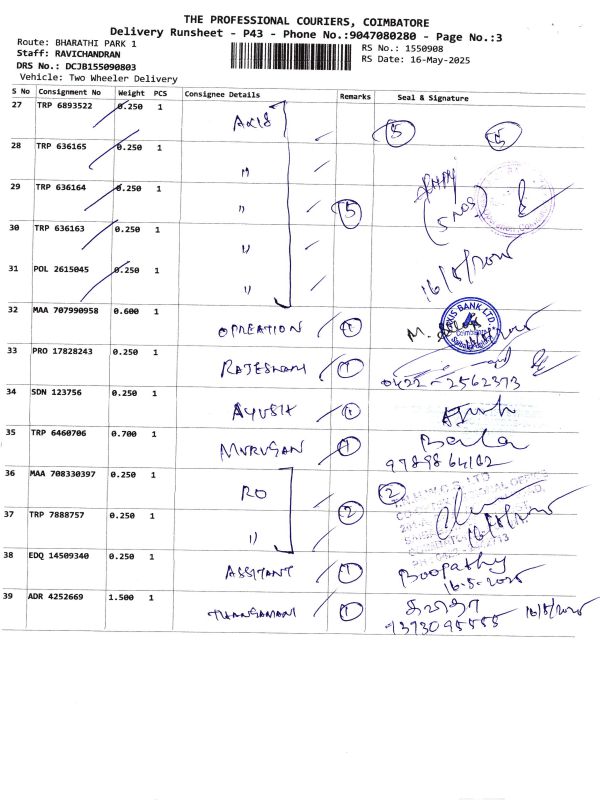 THE PROFESSIONAL COURIERS, COIMBATORE
Delivery Runsheet - P43 - Phone No.:9047080280 - Page No.:3
Route: BHARATHI PARK 1
Staff: RAVICHANDRAN
DRS No.: DCJB155090803
Vehicle: Two Wheeler Delivery
RS No.: 1550908
RS Date: 16-May-2025
S No Consignment No Weight PCS Consignee Details Remarks Seal & Signature
27 TRP 6893522 0.250 1 Axis 5 5
28 TRP 636165 0.250 1 "
29 TRP 636164 0.250 1 " 5 (5 NOS)
30 TRP 636163 0.250 1 "
31 POL 2615045 0.250 1 " 16/5/2025
32 MAA 707990958 0.600 1 OPREATION 1 M. AXIS BANK LTD. Coimbatore
33 PRO 17828243 0.250 1 RAJESWARI 1 0422-2562373
34 SDN 123756 0.250 1 AYUSH 1
35 TRP 6460706 0.700 1 MURUGAN 1 Bala
9789864182
36 MAA 708330397 0.250 1 RO 2
37 TRP 7888757 0.250 1 " 2 16/5/2025
38 EDQ 14509340 0.250 1 ASSITANT 1 Boopathy
16-5-2025
39 ADR 4252669 1.500 1 THANGAMANI 1 16/5/2025
9373095555